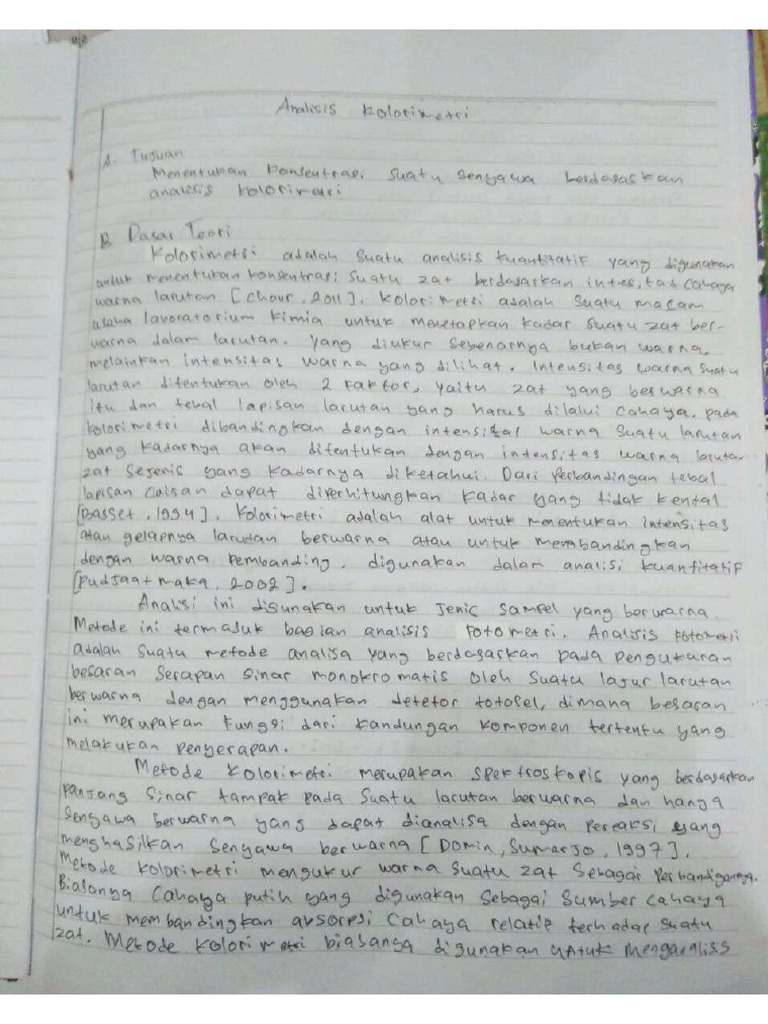 Analisis Kolorimetri
A. Tujuan
Menentukan konsentrasi suatu senyawa berdasarkan
analisis kolorimetri
B. Dasar Teori
Kolorimetri adalah suatu analisis kuantitatif yang digunakan
untuk menentukan konsentrasi suatu zat berdasarkan intesitas cahaya
warna larutan [Chour, 2011]. Kolorimetri adalah suatu macam
usaha laboratorium kimia untuk menetapkan kadar suatu zat ber-
warna dalam larutan. Yang diukur sebenarnya bukan warna,
melainkan intensitas warna yang dilihat. Intensitas warna suatu
larutan ditentukan oleh 2 faktor, yaitu zat yang berwarna
itu dan tebal lapisan larutan yang harus dilalui cahaya. pada
kolorimetri dibandingkan dengan intensital warna suatu larutan
yang kadarnya akan ditentukan dengan intensitas warna larutan
zat sejenis yang kadarnya diketahui. Dari perbandingan tebal
lapisan caisan dapat diperhitungkan kadar yang tidak kental
[Basset, 1994]. Kolorimetri adalah alat untuk menentukan intensitas
atau gelapnya larutan berwarna atau untuk membandingkan
dengan warna pembanding, digunakan dalam analisi kuantitatif
[Pudjaatmaka, 2002].
Analisi ini digunakan untuk jenis sampel yang berwarna.
Metode ini termasuk bagian analisis fotometri. Analisis fotometri
adalah suatu metode analisa yang berdasarkan pada pengukuran
besaran serapan sinar monokromatis oleh suatu lajur larutan
berwarna dengan menggunakan detetor totosel, dimana besaran
ini merupakan fungsi dari kandungan komponen tertentu yang
melakukan penyerapan.
Metode kolorimetri merupakan spektroskopis yang berdasarkan
panjang sinar tampak pada suatu larutan berwarna dan hanya
senyawa berwarna yang dapat dianalisa dengan pereaksi yang
menghasilkan senyawa berwarna [Domin, Sumarjo, 1997].
Metode kolorimetri mengukur warna suatu zat sebagai perbandigannya.
Biasanya cahaya putih yang digunakan sebagai sumber cahaya
untuk membandingkan absorpsi cahaya relatif terhadap suatu
zat. Metode kolorimetri biasanya digunakan untuk menganalisis